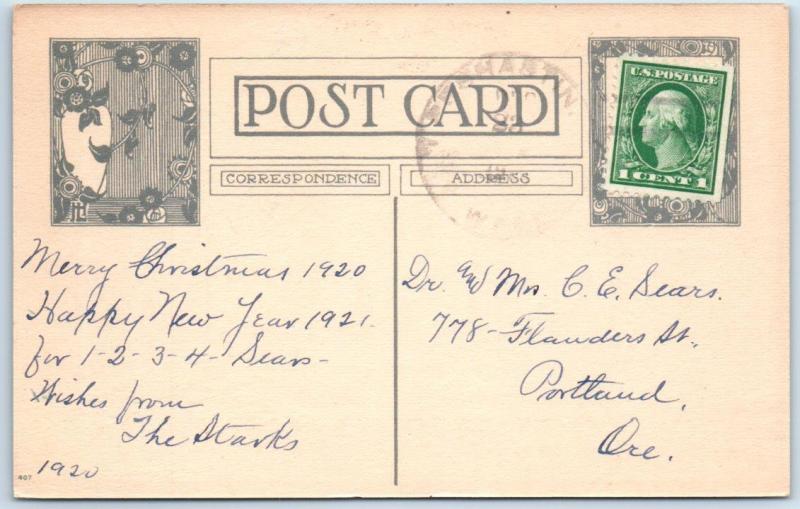 POST CARD
CORRESPONDENCE
ADDRESS
U.S. POSTAGE
1 CENT 1
23
Merry Christmas 1920
Happy New Year 1921.
for 1-2-3-4- Sears-
Wishes from
The Starks
1920
407
Dr. and Mrs. C. E. Sears.
778- Flanders St.,
Portland,
Ore.